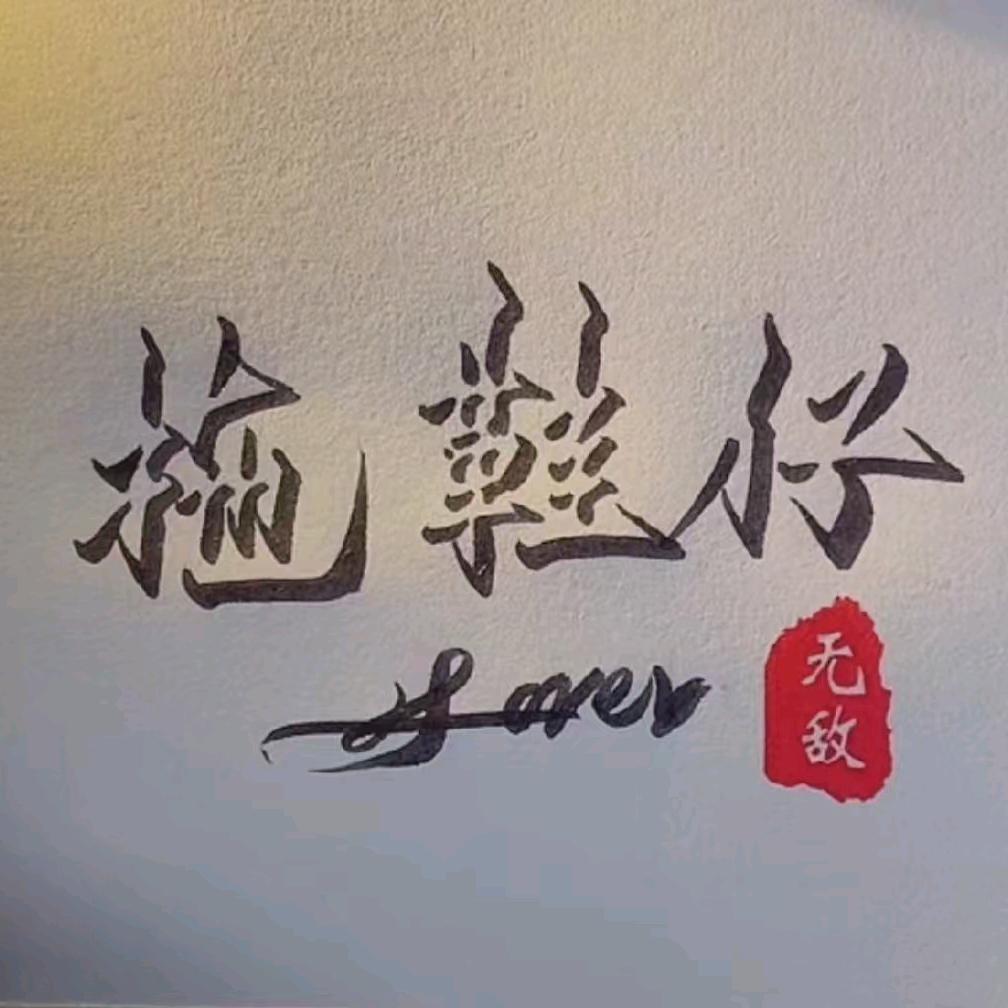 拖鞋仔
Lover
无敌